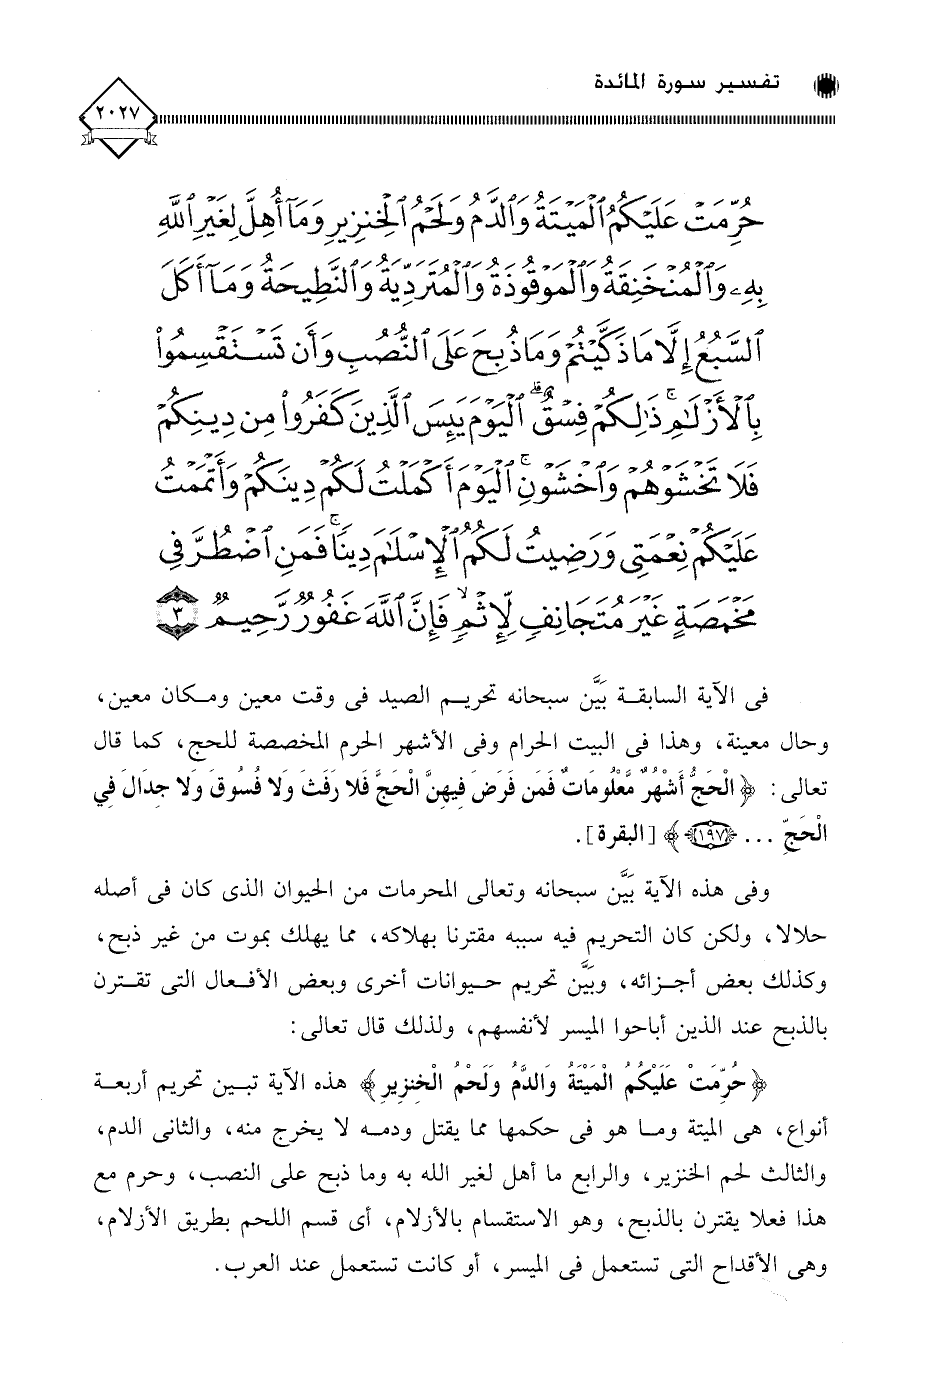 تفسير سورة المائدة
٢٠٢٧
حُرِّمَتْ عَلَيْكُمُ ٱلْمَيْتَةُ وَٱلدَّمُ وَلَحْمُ ٱلْخِنزِيرِ وَمَآ أُهِلَّ لِغَيْرِ ٱللَّهِ
بِهِۦ وَٱلْمُنْخَنِقَةُ وَٱلْمَوْقُوذَةُ وَٱلْمُتَرَدِّيَةُ وَٱلنَّطِيحَةُ وَمَآ أَكَلَ
ٱلسَّبُعُ إِلَّا مَا ذَكَّيْتُمْ وَمَا ذُبِحَ عَلَى ٱلنُّصُبِ وَأَن تَسْتَقْسِمُوا۟
بِٱلْأَزْلَٰمِ ۚ ذَٰلِكُمْ فِسْقٌ ۗ ٱلْيَوْمَ يَئِسَ ٱلَّذِينَ كَفَرُوا۟ مِن دِينِكُمْ
فَلَا تَخْشَوْهُمْ وَٱخْشَوْنِ ۚ ٱلْيَوْمَ أَكْمَلْتُ لَكُمْ دِينَكُمْ وَأَتْمَمْتُ
عَلَيْكُمْ نِعْمَتِى وَرَضِيتُ لَكُمُ ٱلْإِسْلَٰمَ دِينًا ۚ فَمَنِ ٱضْطُرَّ فِى
مَخْمَصَةٍ غَيْرَ مُتَجَانِفٍ لِّإِثْمٍ ۙ فَإِنَّ ٱللَّهَ غَفُورٌ رَّحِيمٌ ٣
فى الآية السابقة بَيَّن سبحانه تحريم الصيد فى وقت معين ومكان معين،
وحال معينة، وهذا فى البيت الحرام وفى الأشهر الحرم المخصصة للحج، كما قال
تعالى: ﴿ الْحَجُّ أَشْهُرٌ مَّعْلُومَاتٌ فَمَن فَرَضَ فِيهِنَّ الْحَجَّ فَلا رَفَثَ وَلا فُسُوقَ وَلا جِدَالَ فِي
الْحَجِّ ... ﴿١٩٧﴾ ﴾ [البقرة].
وفى هذه الآية بَيَّن سبحانه وتعالى المحرمات من الحيوان الذى كان فى أصله
حلالا، ولكن كان التحريم فيه سببه مقترنا بهلاكه، مما يهلك بموت من غير ذبح،
وكذلك بعض أجزائه، وبَيَّن تحريم حيوانات أخرى وبعض الأفعال التى تقترن
بالذبح عند الذين أباحوا الميسر لأنفسهم، ولذلك قال تعالى:
﴿ حُرِّمَتْ عَلَيْكُمُ الْمَيْتَةُ وَالدَّمُ وَلَحْمُ الْخِنزِيرِ ﴾ هذه الآية تبين تحريم أربعة
أنواع، هى الميتة وما هو فى حكمها مما يقتل ودمه لا يخرج منه، والثانى الدم،
والثالث لحم الخنزير، والرابع ما أهل لغير الله به وما ذبح على النصب، وحرم مع
هذا فعلا يقترن بالذبح، وهو الاستقسام بالأزلام، أى قسم اللحم بطريق الأزلام،
وهى الأقداح التى تستعمل فى الميسر، أو كانت تستعمل عند العرب.